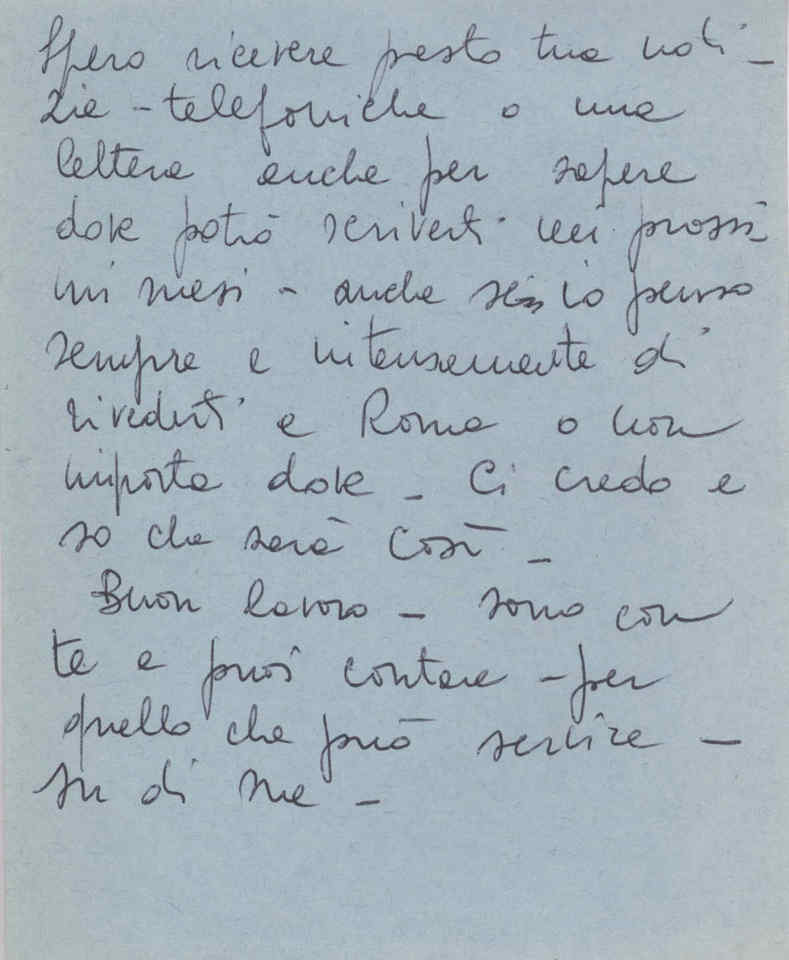 Spero ricevere presto tua noti-
zie - telefoniche o una
lettera anche per sapere
dove potrò scriverti nei prossi
mi mesi - anche se io penso
sempre e intensamente di
rivederti a Roma o non
importa dove - Ci credo e
so che sarà così -
Buon lavoro - sono con
te e puoi contare - per
quello che può servire -
su di me -